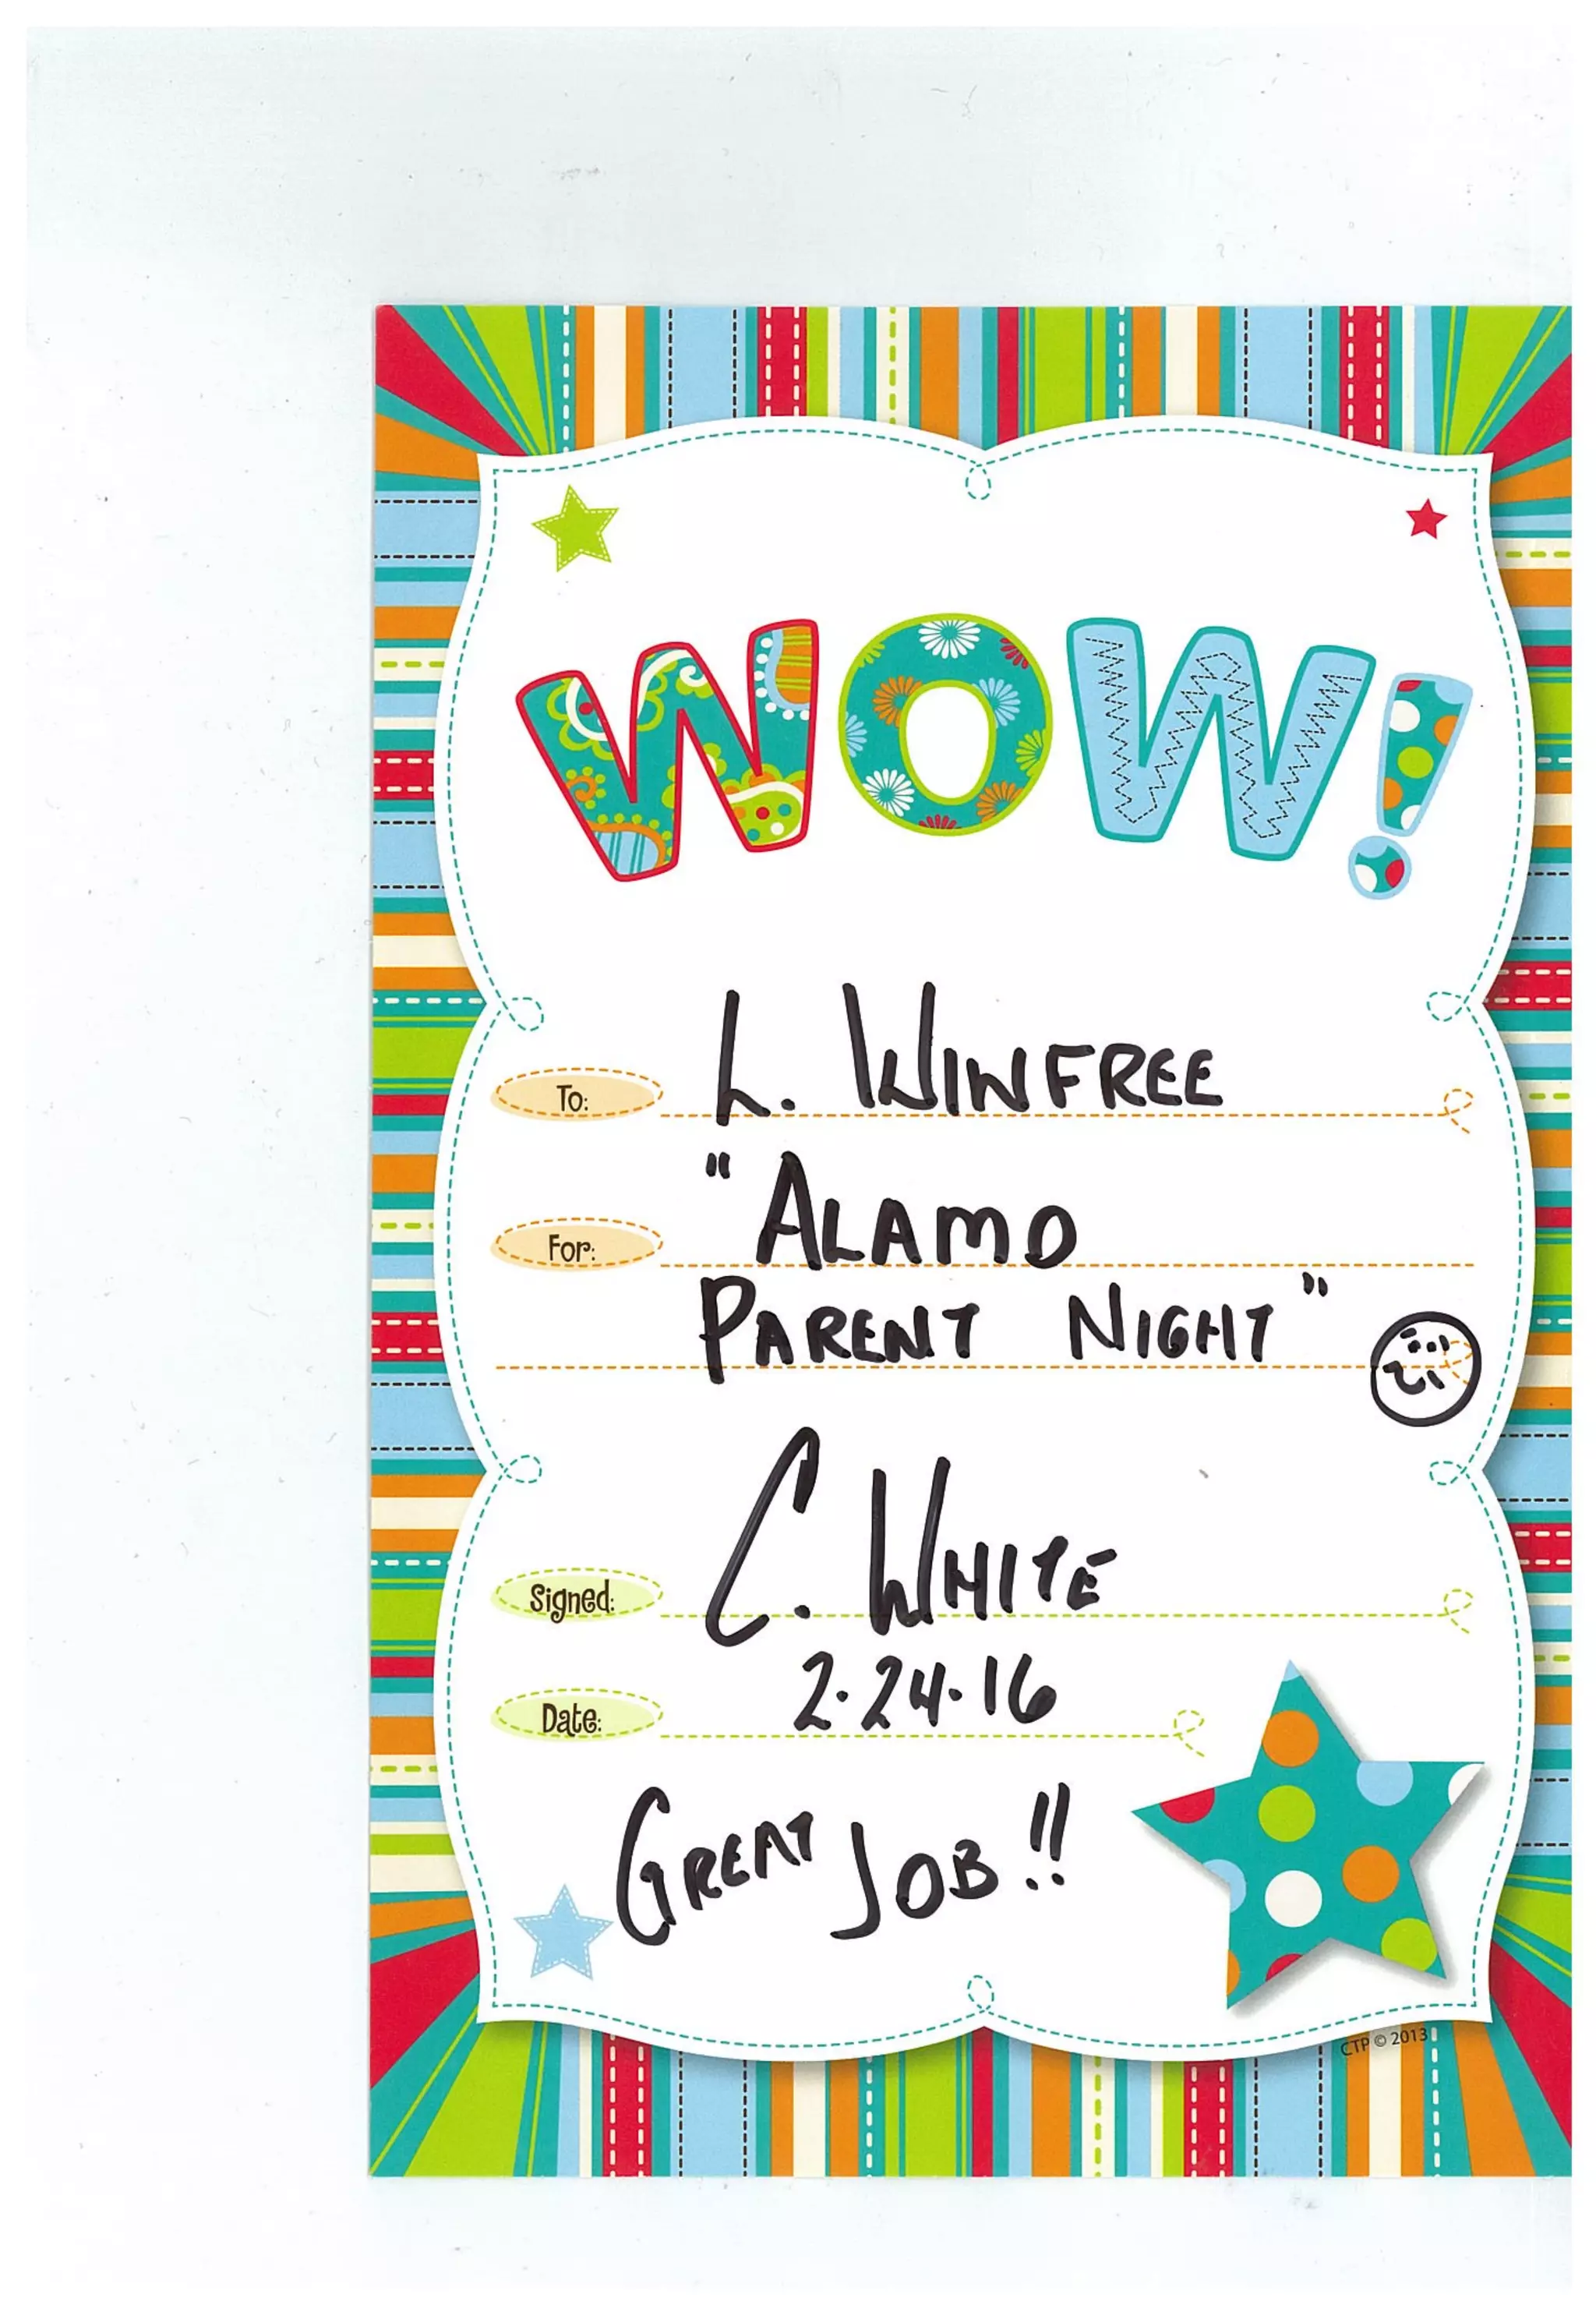 WOW!
To: L. WINFREE
"ALAMO
For:
PARENT NIGHT"
Signed: C. WHITE
Date: 2.24.16
GREAT JOB!!
CTP © 2013